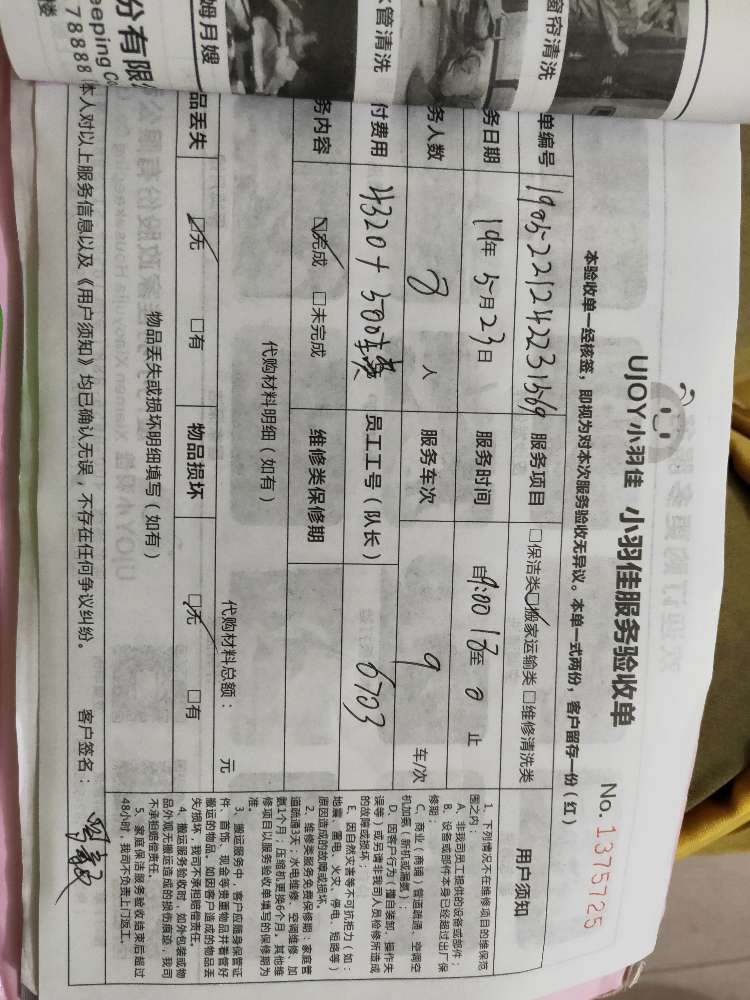 窗帘清洗
水管清洗
姆月嫂
份有限
eeping Co
78888
UJOY小羽佳 小羽佳服务验收单
No. 1375725
本验收单一经核签，即视为对本次服务验收无异议。本单一式两份，客户留存一份（红）
单编号 190522124223 服务项目 □保洁类☑搬家运输类 □维修清洗类
务日期 19年 5月 23日 服务时间 自9:00 至 止
务人数 人 服务车次 9 车/次
付费用 4320+500 员工工号（队长） 6703
务内容 ☑完成 □未完成 维修类保修期
代购材料明细（如有） 代购材料总额： 元
品丢失 ☑无 □有 物品损坏 ☑无 □有
物品丢失或损坏明细填写（如有）
本人对以上服务信息以及《用户须知》均已确认无误，不存在任何争议纠纷。 客户签名：
用户须知
1、下列情况不在维修项目的维保范
围之内：
A、非我司员工提供的设备或部件；
B、设备或部件本身已经超过出厂保
修期；
C、商业（商铺）管道疏通、空调空
机加氨（新机缺漏氨）；
D、因客户行为（擅自装卸、操作失
误等）或另请非我司人员检修所造成
的故障或损坏；
E、因自然灾害等不可抗拒力（如：
地震、雷电、火灾、停电、短路等）
原因造成的故障或损坏。
2、维修类服务免费保修期：家庭管
道疏通3天；水电维修、空调维修、加
氨1个月；压缩机更换6个月；其他维
修项目以服务验收单填写的保修期为
准。
3、搬运服务中，客户应随身保管证
件、首饰、现金等贵重物品并看管好
搬运的物品，如因客户造成的物品丢
失/损坏，我司不承担赔偿责任。
4、搬运服务验收时，如外包装或物
品外观无搬运造成的损伤痕迹，我司
不承担赔偿责任。
5、家庭保洁服务验收结束后超过
48小时，我司不负责上门返工。